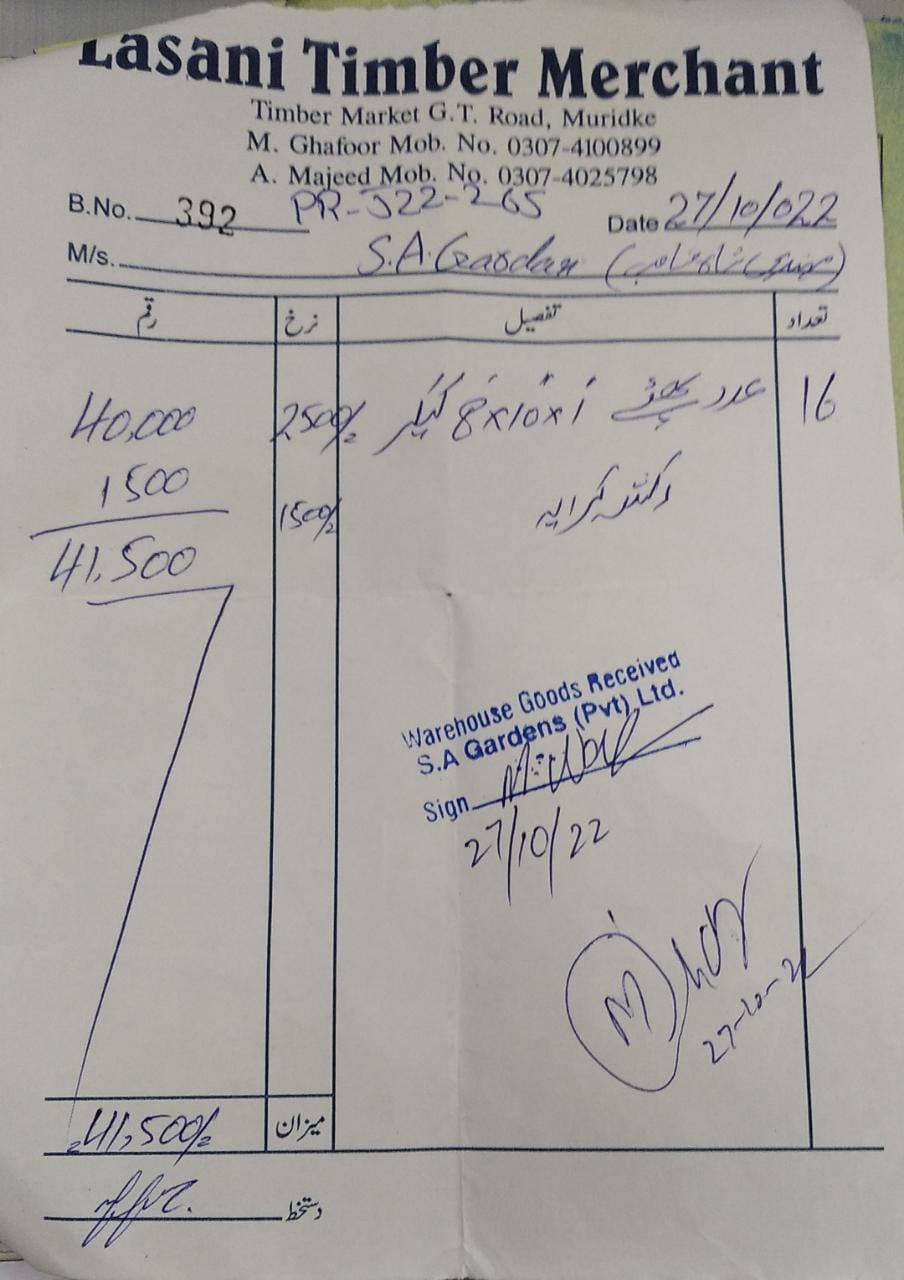 Lasani Timber Merchant
Timber Market G.T. Road, Muridke
M. Ghafoor Mob. No. 0307-4100899
A. Majeed Mob. No. 0307-4025798
B.No. 392 PR-522-265 Date 27/10/022
M/s. S.A. Garden
تعداد تفصیل نرخ رقم
16 عدد 8x10x1 کیکر 2500/= 40,000
رکشہ کرایہ 1500/= 1500
41,500
Warehouse Goods Received
S.A Gardens (Pvt) Ltd.
Sign
27/10/22
27-10-22
میزان 41,500/=
دستخط